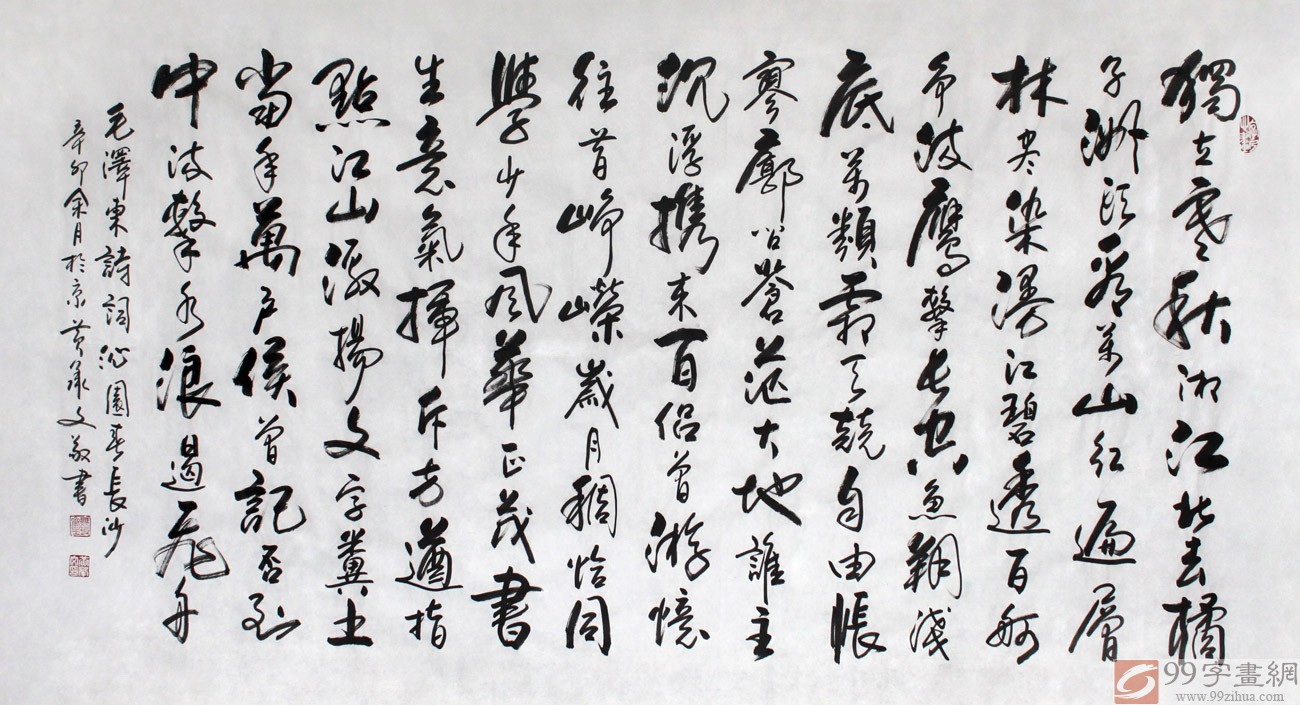 獨立寒秋湘江北去橘
子洲頭看萬山紅遍層
林盡染漫江碧透百舸
爭流鷹擊長空魚翔淺
底萬類霜天競自由悵
寥廓問蒼茫大地誰主
沉浮携來百侶曾游憶
往昔崢嶸歲月稠恰同
學少年風華正茂書
生意氣揮斥方遒指
點江山激揚文字糞土
當年萬戶侯曾記否到
中流擊水浪遏飛舟
毛澤東詩詞沁園春長沙
辛卯余月於京黄承文敬書
99字畫網
www.99zihua.com